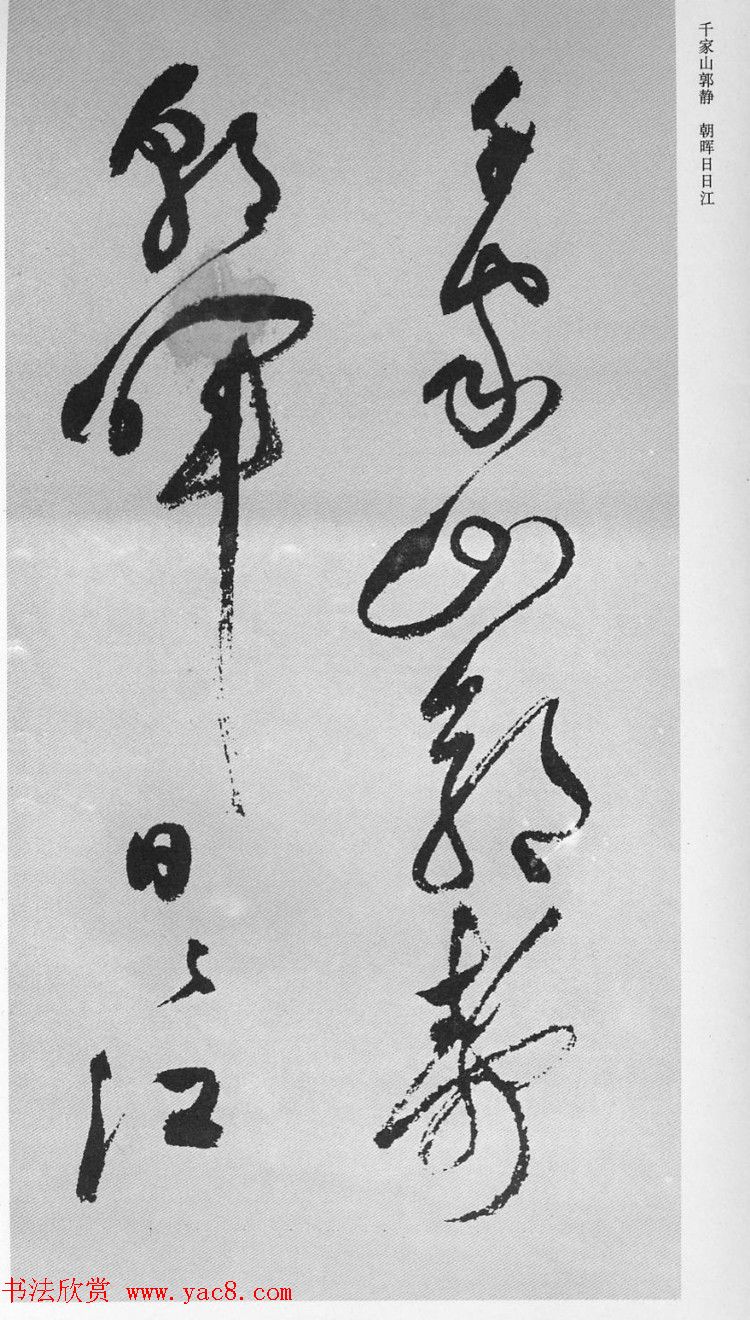 千家山郭静 朝晖日日江
千家山郭静
朝晖日〻江
书法欣赏 www.yac8.com